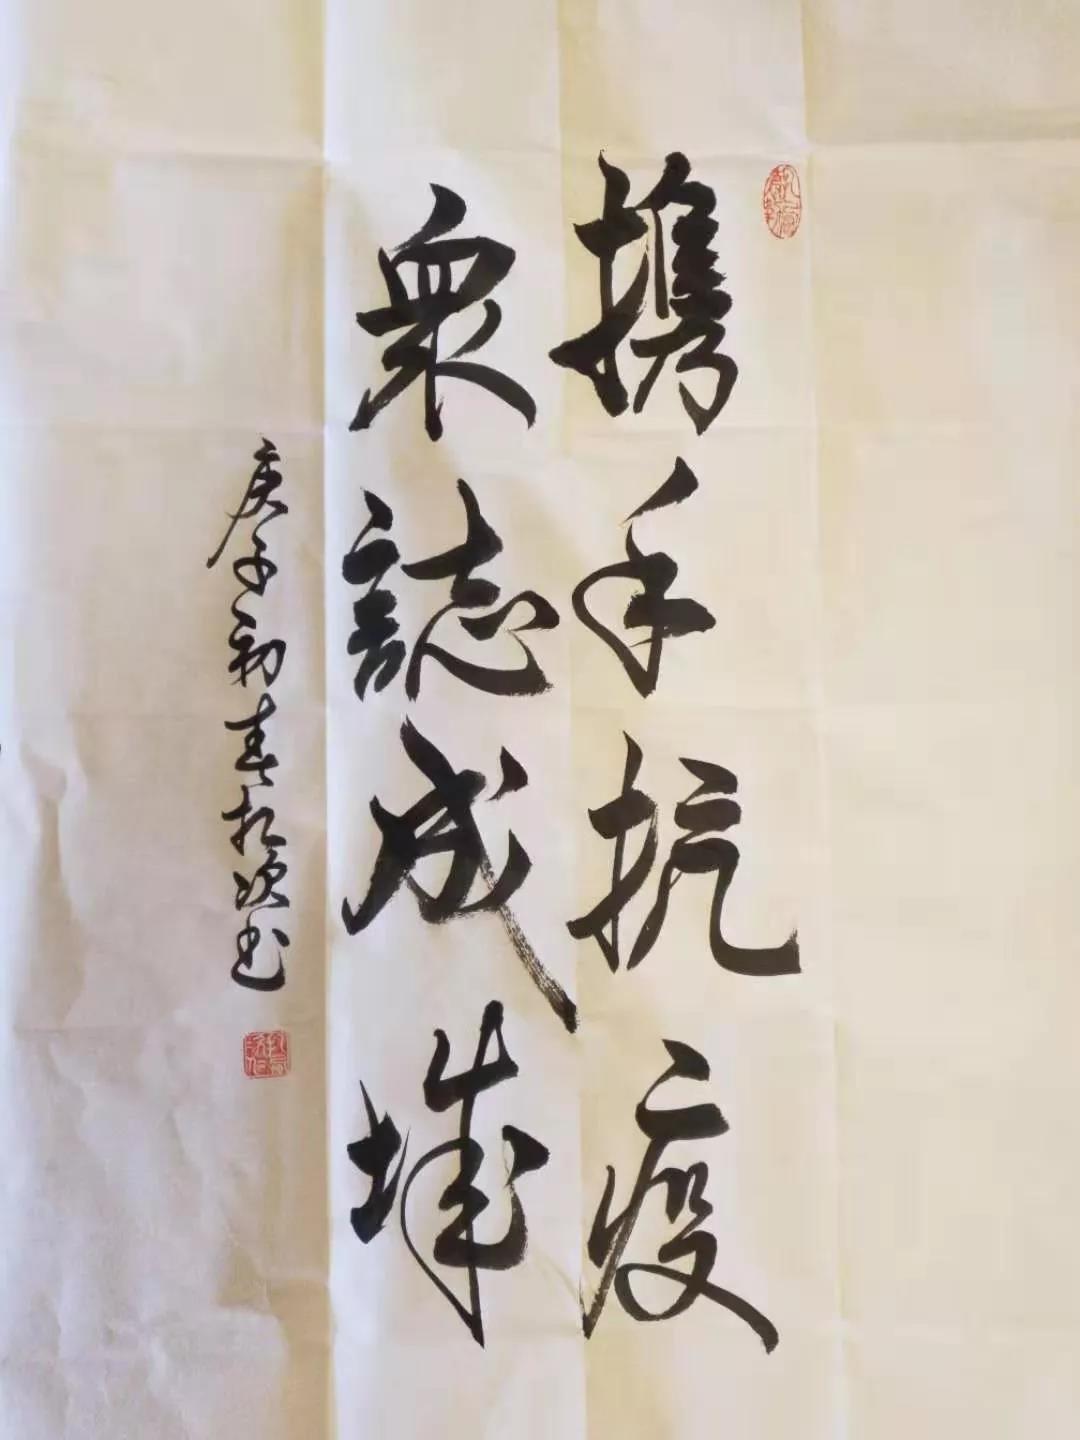 携手抗疫
衆誌成城
庚子初春於次书